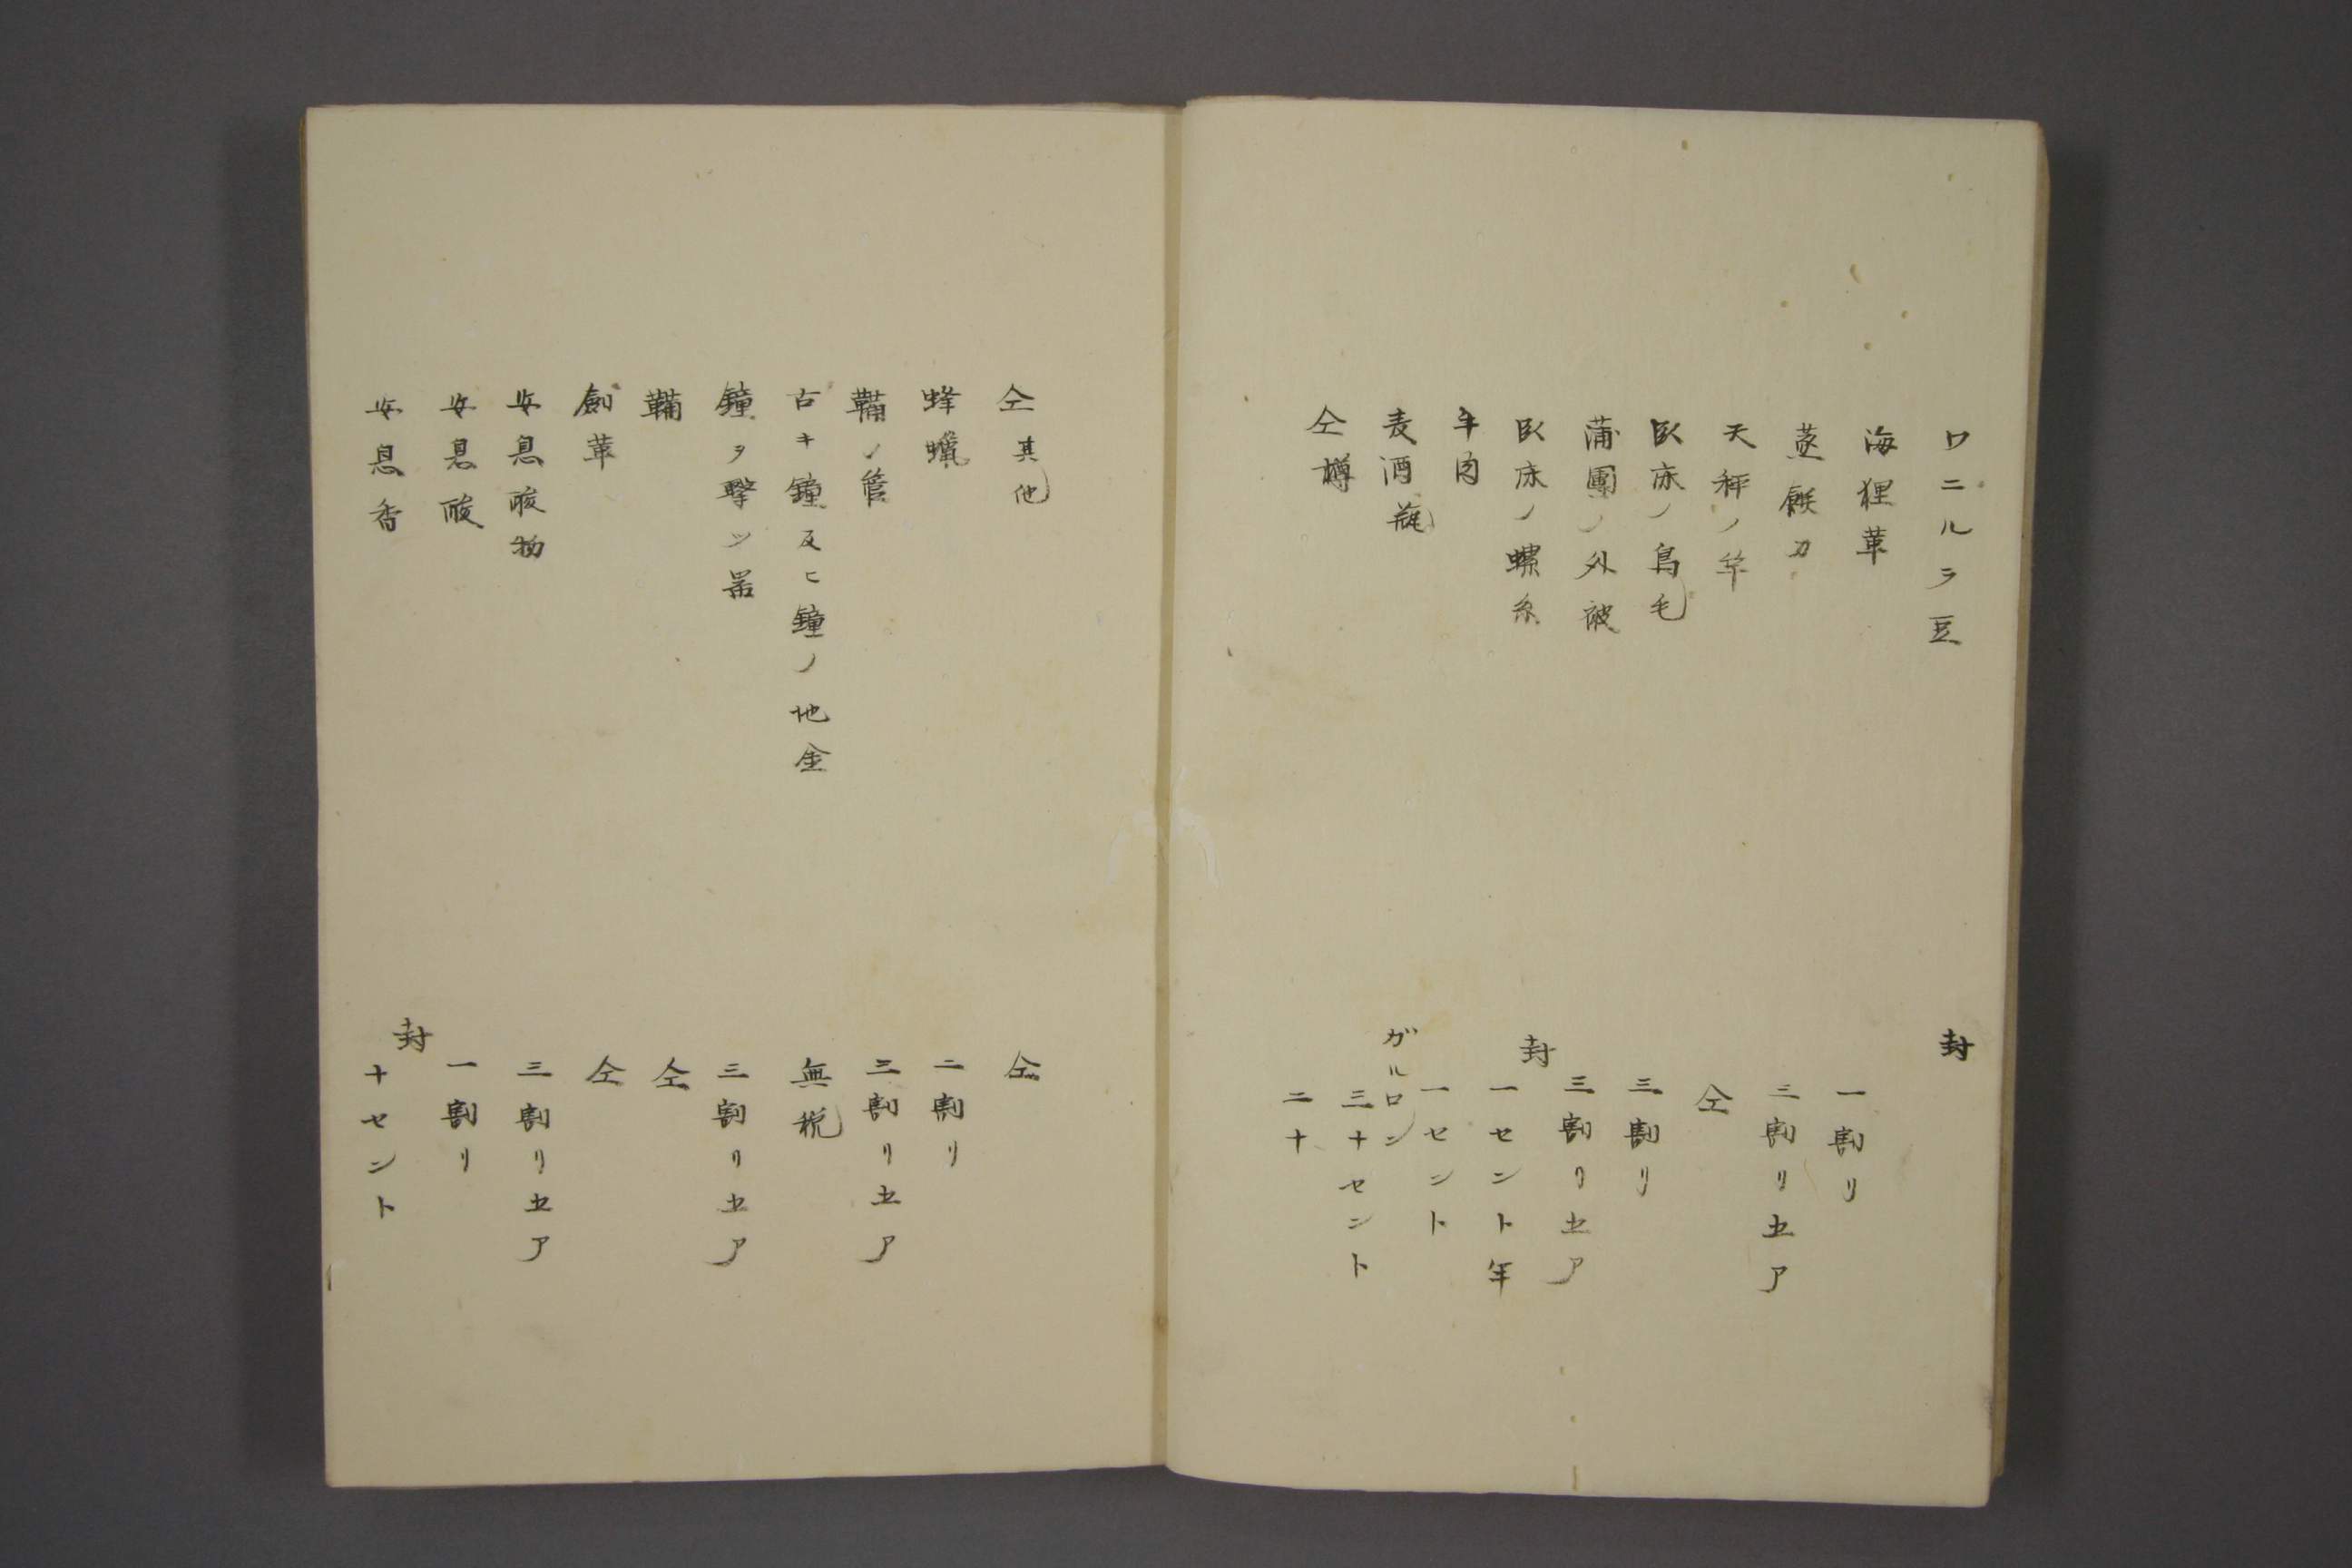 ワニルラ豆　封
海狸革　一割リ
蒸餅カ　三割リ五ア
天秤ノ竿　仝
臥床ノ鳥毛　三割リ
蒲團ノ外被　三割リ五ア
臥床ノ螺糸　封 一セント半
牛肉　一セント
麦酒瓶　ガルロン 三十セント
仝樽　二十
仝其他　仝
蜂蠟　二割リ
鞴ノ管　三割リ五ア
古キ鐘及ヒ鐘ノ地金　無税
鐘ヲ擊ツ器　三割リ五ア
鞴　仝
劍革　仝
安息酸物　三割リ五ア
安息酸　一割リ
安息香　封 十セント